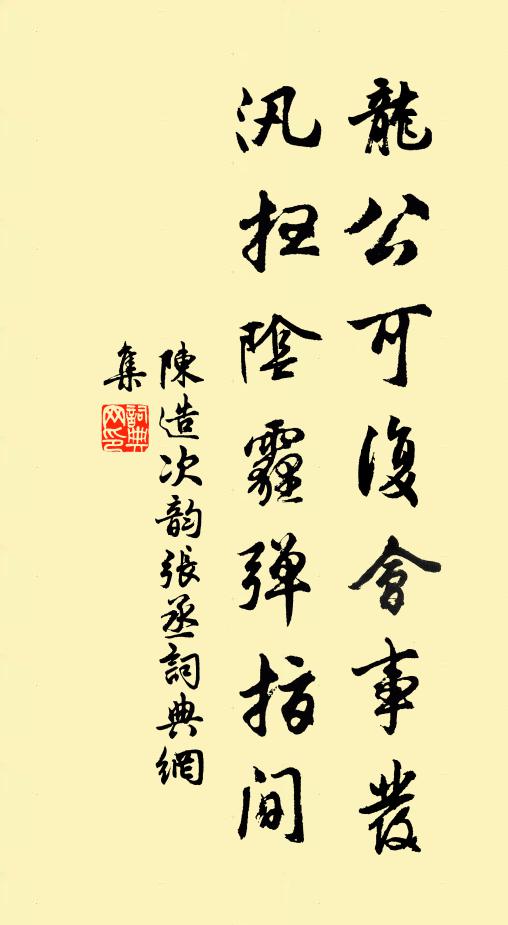 龍公可復會事發
汎掃陰霾彈指間
陳造次韵張丞詞典網
集
詞典网印